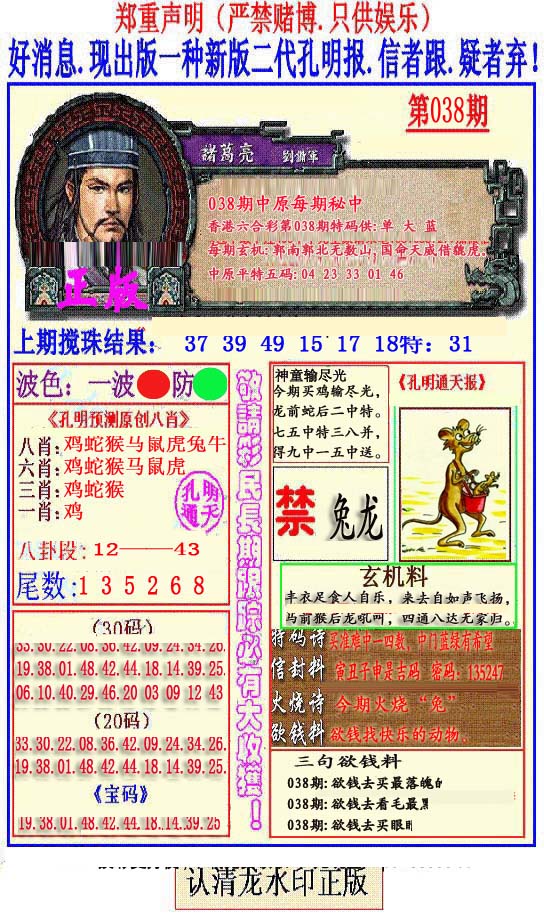 郑重声明（严禁赌博.只供娱乐）
好消息.现出版一种新版二代孔明报.信者跟.疑者弃!
第038期
諸葛亮 劉備軍
038期中原每期秘中
香港六合彩第038期特码供:单 大 蓝
每期玄机:郭南郭北无数山,国命天威借貔虎.
中原平特五码:04 23 33 01 46
正版
上期搅珠结果： 37 39 49 15 17 18特：31
波色：一波 防
《孔明预测原创八肖》
八肖:鸡蛇猴马鼠虎兔牛
六肖:鸡蛇猴马鼠虎
三肖:鸡蛇猴
一肖:鸡
孔明通天
八卦段:12——43
尾数:135268
(30码)
33.30.22.08.36.42.09.24.34.26.
19.38.01.48.42.44.18.14.39.25.
06.10.40.29.46.20 03 09 12 43
(20码)
33.30.22.08.36.42.09.24.34.26.
19.38.01.48.42.44.18.14.39.25.
《宝码》
19.38.01.48.42.44.18.14.39.25
敬請彩民長期跟踪必有大收獲！
神童输尽光
今期买鸡输尽光，
龙前蛇后二中特。
七五中特三八并，
得九中一五中送。
《孔明通天报》
禁 兔龙
玄机料
丰衣足食人自乐，来去自如声飞扬，
当前猴后龙吼叫，四通八达无家归。
特码诗 买准难中一四数，中门蓝绿有希望
信封料 寅丑子申是吉码 密码：135247
火烧诗 今期火烧“兔”
欲钱料 欲钱找快乐的动物.
三句欲钱料
038期:欲钱去买最落魄
038期:欲钱去看毛最
038期:欲钱去买眼
认清龙水印正版